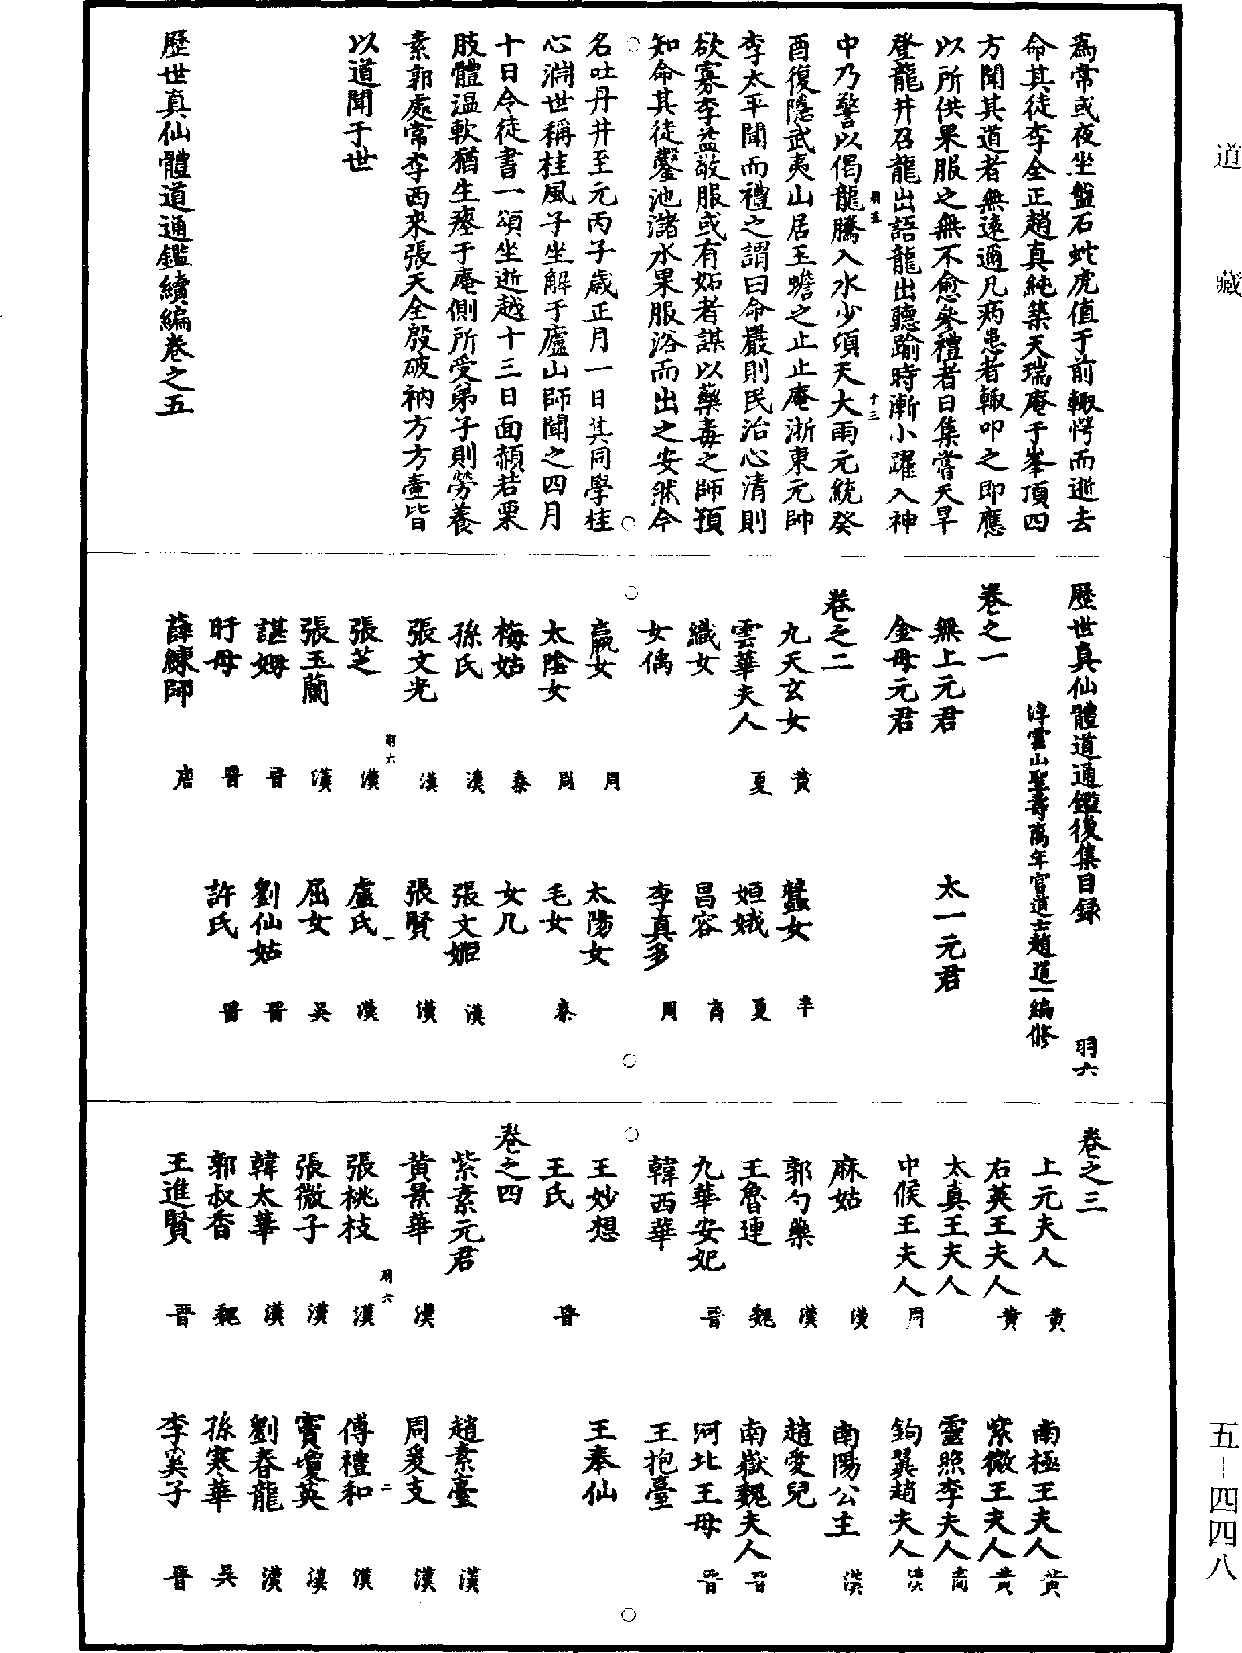 道藏
為常或夜坐盤石虵虎值于前輙愕而逝去
命其徒李全正趙真純築天瑞庵于峯頂四
方聞其道者無遠邇凡病患者輙叩之即應
以所供果服之無不愈參禮者日集嘗天旱
登龍井召龍出語龍出聽踰時漸小躍入神
羽五
十三
中乃警以偈龍騰入水少頃天大雨元統癸
酉復隱武夷山居玉蟾之止止庵浙東元帥
李太平聞而禮之謂曰命嚴則民治心清則
欲寡李益敬服或有妬者謀以藥毒之師預
知命其徒鑿池瀦水果服浴而出之安然今
名吐丹井至元丙子歲正月一日其同學桂
心淵世稱桂風子坐解于廬山師聞之四月
十日令徒書一頌坐逝越十三日面顏若栗
肢體温軟猶生瘞于庵側所受弟子則勞養
素郭處常李西來張天全殷破衲方方壺皆
以道聞于世
歷世真仙體道通鑑續編卷之五
歷世真仙體道通鑑後集目録 羽六
浮雲山聖壽萬年宮道士趙道一編修
卷之一
無上元君 太一元君
金母元君
卷之二
九天玄女 黄 蠶女 辛
雲華夫人 夏 姮娥 夏
織女 昌容 商
女偊 李真多 周
嬴女 周 太陽女
太陰女 周 毛女 秦
梅姑 秦 女几
孫氏 漢 張文姬 漢
張文光 漢 張賢 漢
羽六
一
張芝 漢 盧氏 漢
張玉蘭 漢 屈女 吳
諶姆 晉 劉仙姑 晉
盱母 晉 許氏 晉
薛練師 唐
卷之三
上元夫人 黄 南極王夫人 黄
右英王夫人 黄 紫微王夫人 黄
太真王夫人 靈照李夫人 商
中候王夫人 周 鉤翼趙夫人 漢
麻姑 漢 南陽公主 漢
郭勺藥 漢 趙愛兒
王魯連 魏 南嶽魏夫人 晉
九華安妃 晉 河北王母 晉
韓西華 王抱臺
王妙想 王奉仙
王氏 晉
卷之四
紫素元君 趙素臺 漢
黄景華 漢 周爰支 漢
羽六
二
張桃枝 漢 傅禮和 漢
張微子 漢 竇瓊英 漢
韓太華 漢 劉春龍 漢
郭叔香 魏 孫寒華 吳
王進賢 晉 李奚子 晉
五-四四八